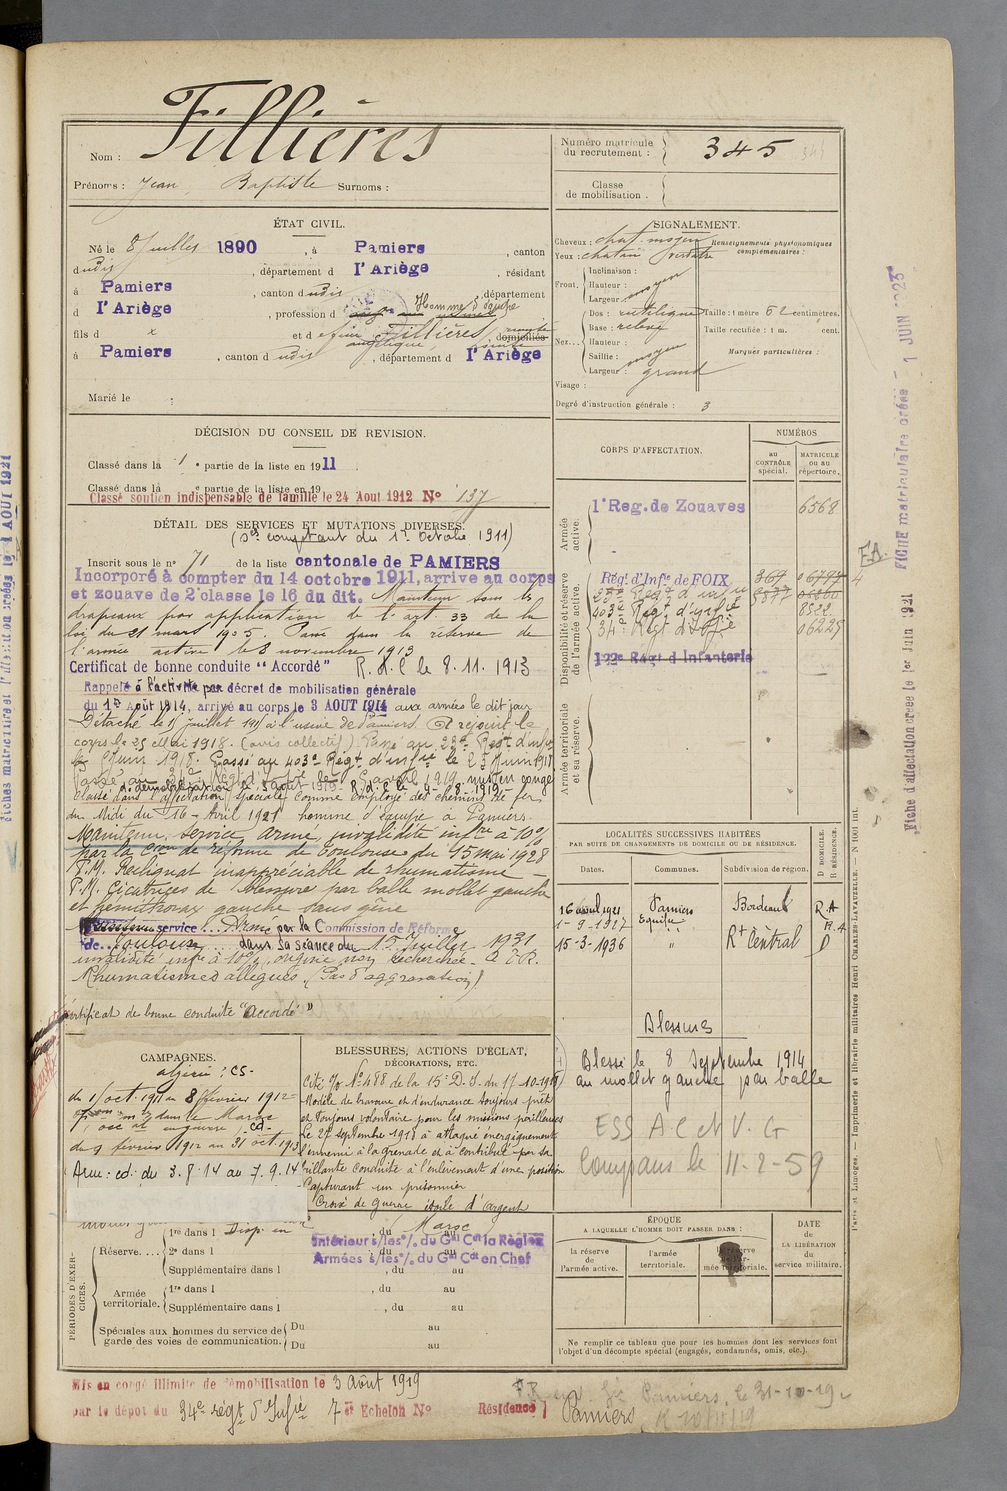 Fillières
Nom :
Prénoms : Jean Baptiste Surnoms :
Numéro matricule du recrutement : 345
Classe de mobilisation .
ÉTAT CIVIL.
Né le 8 Juillet 1890 , à Pamiers , canton
dudit , département d l'Ariège , résidant
à Pamiers , canton dudit , département
d l'Ariège , profession d Homme d'équipe
fils d x et d Fillières , domiciliés
à Pamiers , canton dudit , département d l'Ariège
Marié le
SIGNALEMENT.
Cheveux : chat. moyen
Yeux : chatain verdâtre
Renseignements physionomiques complémentaires :
Front. Inclinaison :
Hauteur : moyen
Largeur :
Nez... Dos : rectiligne
Base : relevé
Hauteur :
Saillie : moyen
Largeur : grand
Visage :
Degré d'instruction générale : 3
Taille : 1 mètre 62 centimètres.
Taille rectifiée : 1 m. cent.
Marques particulières :
DÉCISION DU CONSEIL DE REVISION.
Classé dans la 1 e partie de la liste en 1911
Classé dans la e partie de la liste en 19
Classé soutien indispensable de famille le 24 Aout 1912 No 137
DÉTAIL DES SERVICES ET MUTATIONS DIVERSES.
(Sce comptant du 1er Octobre 1911)
Inscrit sous le no 71 de la liste cantonale de PAMIERS
Incorporé à compter du 14 octobre 1911, arrivé au corps
et zouave de 2e classe le 16 du dit. Maintenu sous les
drapeaux par application de l'art 33 de la
loi du 21 mars 1905. Passé dans la réserve de
l'armée active le 8 novembre 1913
Certificat de bonne conduite "Accordé" R. d. C le 8.11.1913
Rappelé à l'activité par décret de mobilisation générale
du 1er Août 1914, arrivé au corps le 3 AOUT 1914 aux armées le dit jour
Détaché le 15 juillet 191 à l'usine de Pamiers. A rejoint le
corps le 25 Mai 1918. (avis collectif) Passé au 23e Regt d'infie
le Juin 1918. Passé au 403e Régt d'infie le 23 Juin 1918
Passé au 34e Régt d'Infie le avril 1919, mis en congé
de démobilisation le 3 août 1919 R.d.C le 4-8-1919
Classé dans l'affectation spéciale comme employé des chemins de fer
du Midi du 16 - Avril 1921 homme d'équipe à Pamiers.
Maintenu service armé, invalidité infre à 10%
par la Cion de réforme de Toulouse du 15 mai 1928
P.M. Reliquat inappréciable de rhumatisme -
P.M. Cicatrices de blessure par balle mollet gauche
et hémithorax gauche sans gêne
Maintenu service Armé par la Commission de Réforme
de Toulouse dans sa séance du 1er Juillet 1931
invalidité infre à 10%, origine non recherchée.
Rhumatismes allégués. (Pas d'aggravation)
Certificat de bonne conduite "Accordé"
CORPS D'AFFECTATION.
NUMÉROS
AU CONTRÔLE spécial.
MATRICULE OU AU répertoire.
Armée active.
1r Reg. de Zouaves 6568
Disponibilité et réserve de l'armée active.
Régt d'Infie de FOIX 367 06797
403e Régt d'infie 8522
34e Régt d'Infie 06225
122e Régt d'Infanterie
Armée territoriale et sa réserve.
LOCALITÉS SUCCESSIVES HABITÉES
PAR SUITE DE CHANGEMENTS DE DOMICILE OU DE RÉSIDENCE.
Dates. Communes. Subdivision de région. D DOMICILE. R RÉSIDENCE.
16 avril 1921 Pamiers Bordeaux R.A
1-9-1927 Equipe R.A
15-3-1936 " Rt Central D
Blessures
Blessé le 8 Septembre 1914
au mollet gauche par balle
ESS A.C et V. G
Compans le 11-2-59
CAMPAGNES.
Algérie : CS-
du 1 oct. 1911 au 8 février 1912
du 9 février 1912 au 31 oct. 1913
Arm: cd: du 3.8.14 au 7.9.14
BLESSURES, ACTIONS D'ÉCLAT,
DÉCORATIONS, ETC.
Cité O/ No 488 de la 15e D.I. du 17-10-1918
Modèle de bravoure et d'endurance toujours prêt
et toujours volontaire pour les missions périlleuses
Le 27 septembre 1918 a attaqué énergiquement
l'ennemi à la grenade et a contribué par sa
brillante conduite à l'enlèvement d'une position
Capturant un prisonnier
Croix de Guerre étoile d'argent
Maroc
Intérieur s/les o/. du Gal Cdt la Région
Armées s/les o/. du Gal Cdt en Chef
PÉRIODES D'EXERCICES.
Réserve.... 1re dans l , du au
2e dans l , du au
Supplémentaire dans l , du au
Armée territoriale. 1re dans l , du au
Supplémentaire dans l , du au
Spéciales aux hommes du service de garde des voies de communication. Du au
Du au
ÉPOQUE
A LAQUELLE L'HOMME DOIT PASSER DANS :
la réserve de l'armée active.
l'armée territoriale.
la réserve de l'armée territoriale.
DATE DE LA LIBÉRATION DU service militaire.
Ne remplir ce tableau que pour les hommes dont les services font
l'objet d'un décompte spécial (engagés, condamnés, omis, etc.).
Mis en congé illimité de démobilisation le 3 Août 1919
par le dépôt du 34e régt d'Infie 7e Echelon No Résidence Pamiers
Pamiers, le 31-10-19
FICHE matriculaire créée 1 JUIN 1923
Fiche d'affectation créée le 1er Juin 1921
Paris et Limoges. — Imprimerie et librairie militaires Henri CHARLES-LAVAUZELLE.